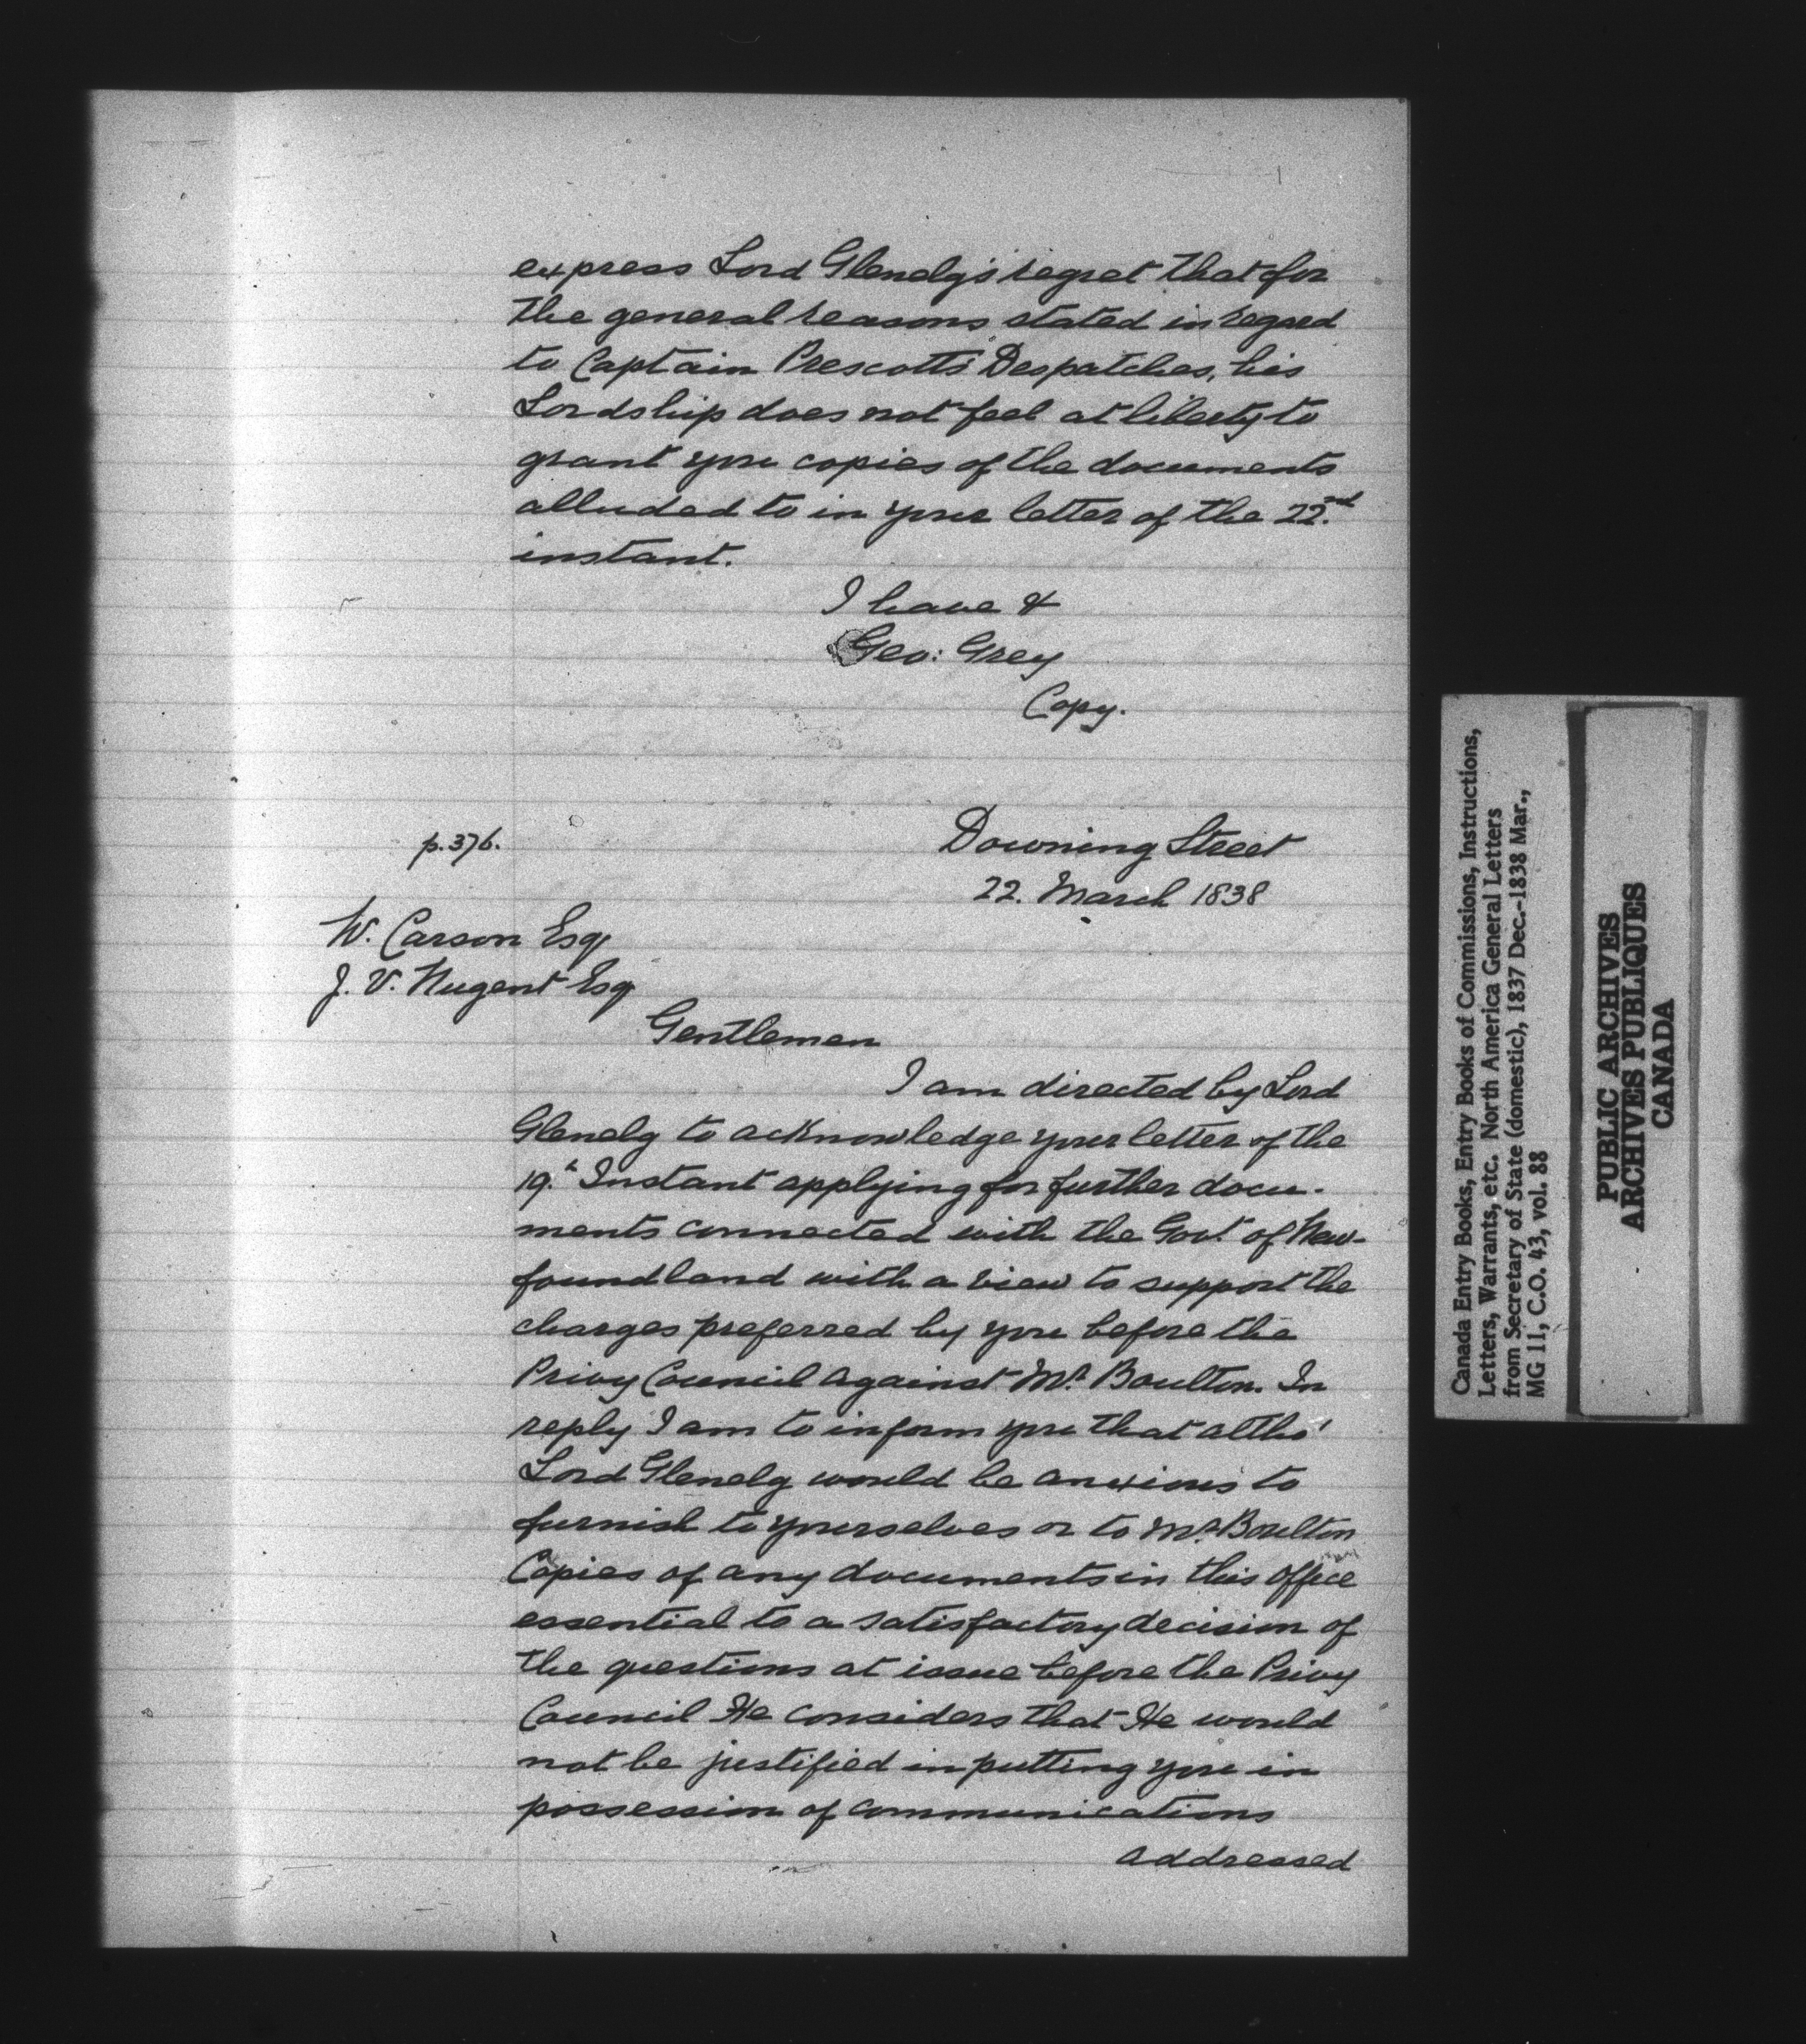 express Lord Glenelg's regret that for
the general reasons stated in regard
to Captain Prescott's Despatches, his
Lordship does not feel at liberty to
grant you copies of the documents
alluded to in your letter of the 22.nd
instant.
I have &
Geo: Grey
Copy.
p. 376.
Downing Street
22. March 1838
W. Carson Esq
J. V. Nugent Esq
Gentlemen
I am directed by Lord
Glenelg to acknowledge your letter of the
19.h Instant applying for further docu-
ments connected with the Govt. of New-
foundland with a view to support the
charges preferred by you before the
Privy Council against Mr. Boulton. In
reply I am to inform you that altho'
Lord Glenelg would be anxious to
furnish to yourselves or to Mr. Boulton
Copies of any documents in this office
essential to a satisfactory decision of
the questions at issue before the Privy
Council He considers that He would
not be justified in putting you in
possession of communications
addressed
Canada Entry Books, Entry Books of Commissions, Instructions,
Letters, Warrants, etc. North America General Letters
from Secretary of State (domestic), 1837 Dec.-1838 Mar.,
MG 11, C.O. 43, vol. 88
PUBLIC ARCHIVES
ARCHIVES PUBLIQUES
CANADA